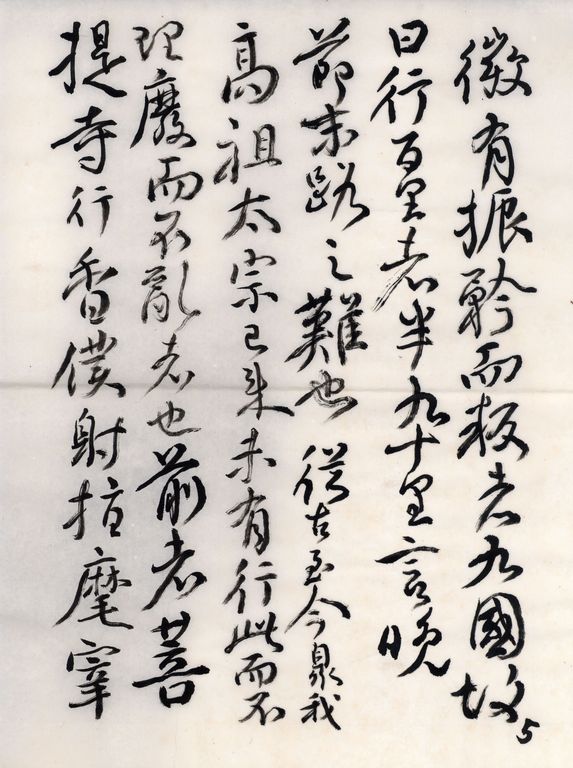 微有振矜而叛者九國故5
曰行百里者半九十里言晚
節末路之難也 從古至今臮我
高祖太宗已來未有行此而不
理廢而不亂者也前者菩
提寺行香僕射指麾宰